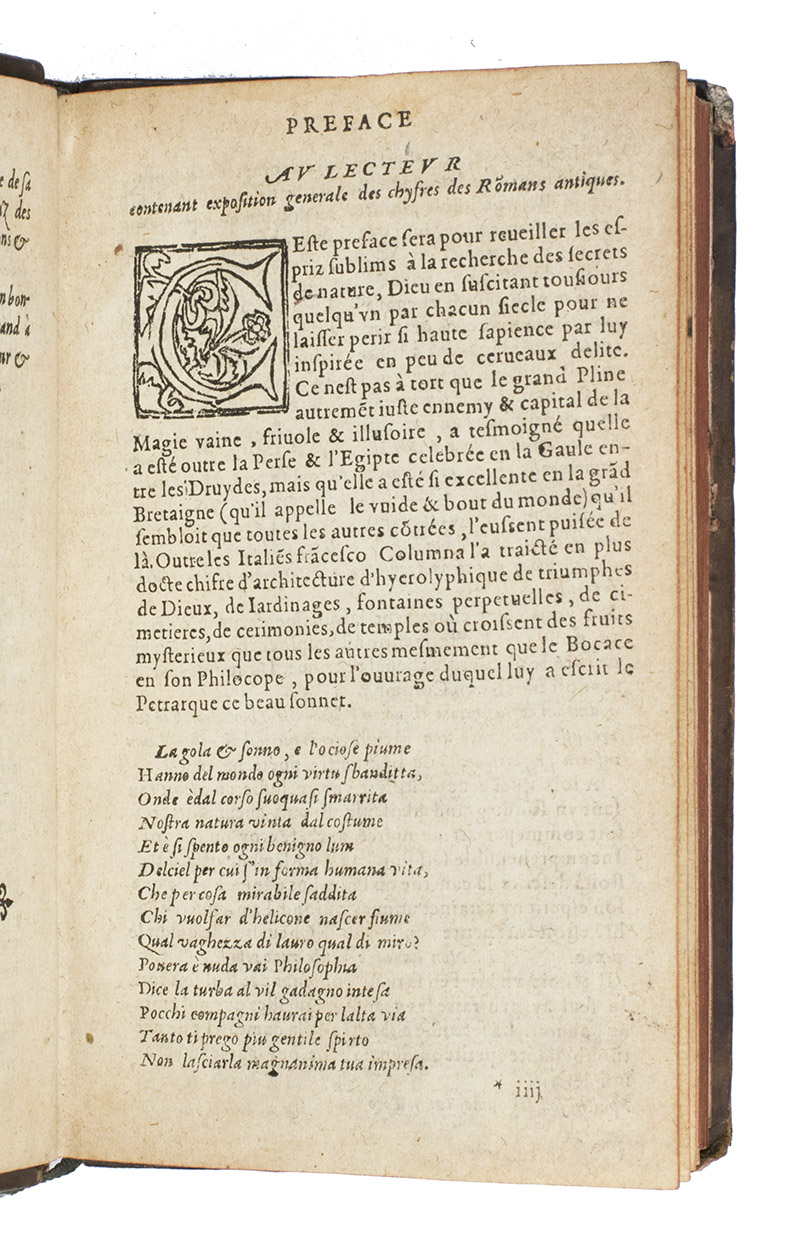 e de sa
des
ns &
n bon-
and à
ur &
PREFACE
AV LECTEVR
contenant exposition generale des chyfres des Rõmans antiques.
CEste preface sera pour reueiller les es-
priz sublims à la recherche des secrets
de nature, Dieu en suscitant tousiours
quelqu'vn par chacun siecle pour ne
laisser perir si haute sapience par luy
inspirée en peu de cerueaux delite.
Ce nest pas à tort que le grand Pline
autremẽt iuste ennemy & capital de la
Magie vaine, friuole & illusoire, a tesmoigné quelle
a esté outre la Perse & l'Egipte celebrée en la Gaule en-
tre les Druydes, mais qu'elle a esté si excellente en la grãd
Bretaigne (qu'il appelle le vuide & bout du monde) qu'il
sembloit que toutes les autres cõtrées, l'eussent puisée de
là. Outre les Italiẽs frãcesco Columna l'a traicté en plus
docte chifre d'architecture d'hyerolyphique de triumphes
de Dieux, de Iardinages, fontaines perpetuelles, de ci-
metieres, de cerimonies, de temples où croissent des fruits
mysterieux que tous les autres mesmement que le Bocace
en son Philocope, pour l'ouurage duquel luy a escrit le
Petrarque ce beau sonnet.
La gola & sonno, e l'ociose piume
Hanno del mondo ogni virtu sbanditta,
Onde èdal corso suoquasi smarrita
Nostra natura vinta dal costume
Et è si spento ogni benigno lum
Delciel per cui s'in forma humana vita,
Che per cosa mirabile saddita
Chi vuolfar d'helicone nascer fiume
Qual vaghezza di lauro qual di miro?
Ponera è nuda vai Philosophia
Dice la turba al vil gadagno intesa
Pocchi compagni haurai per lalta via
Tanto ti prego piu gentile spirto
Non lasciarla magnanima tua impresa.
* iiij